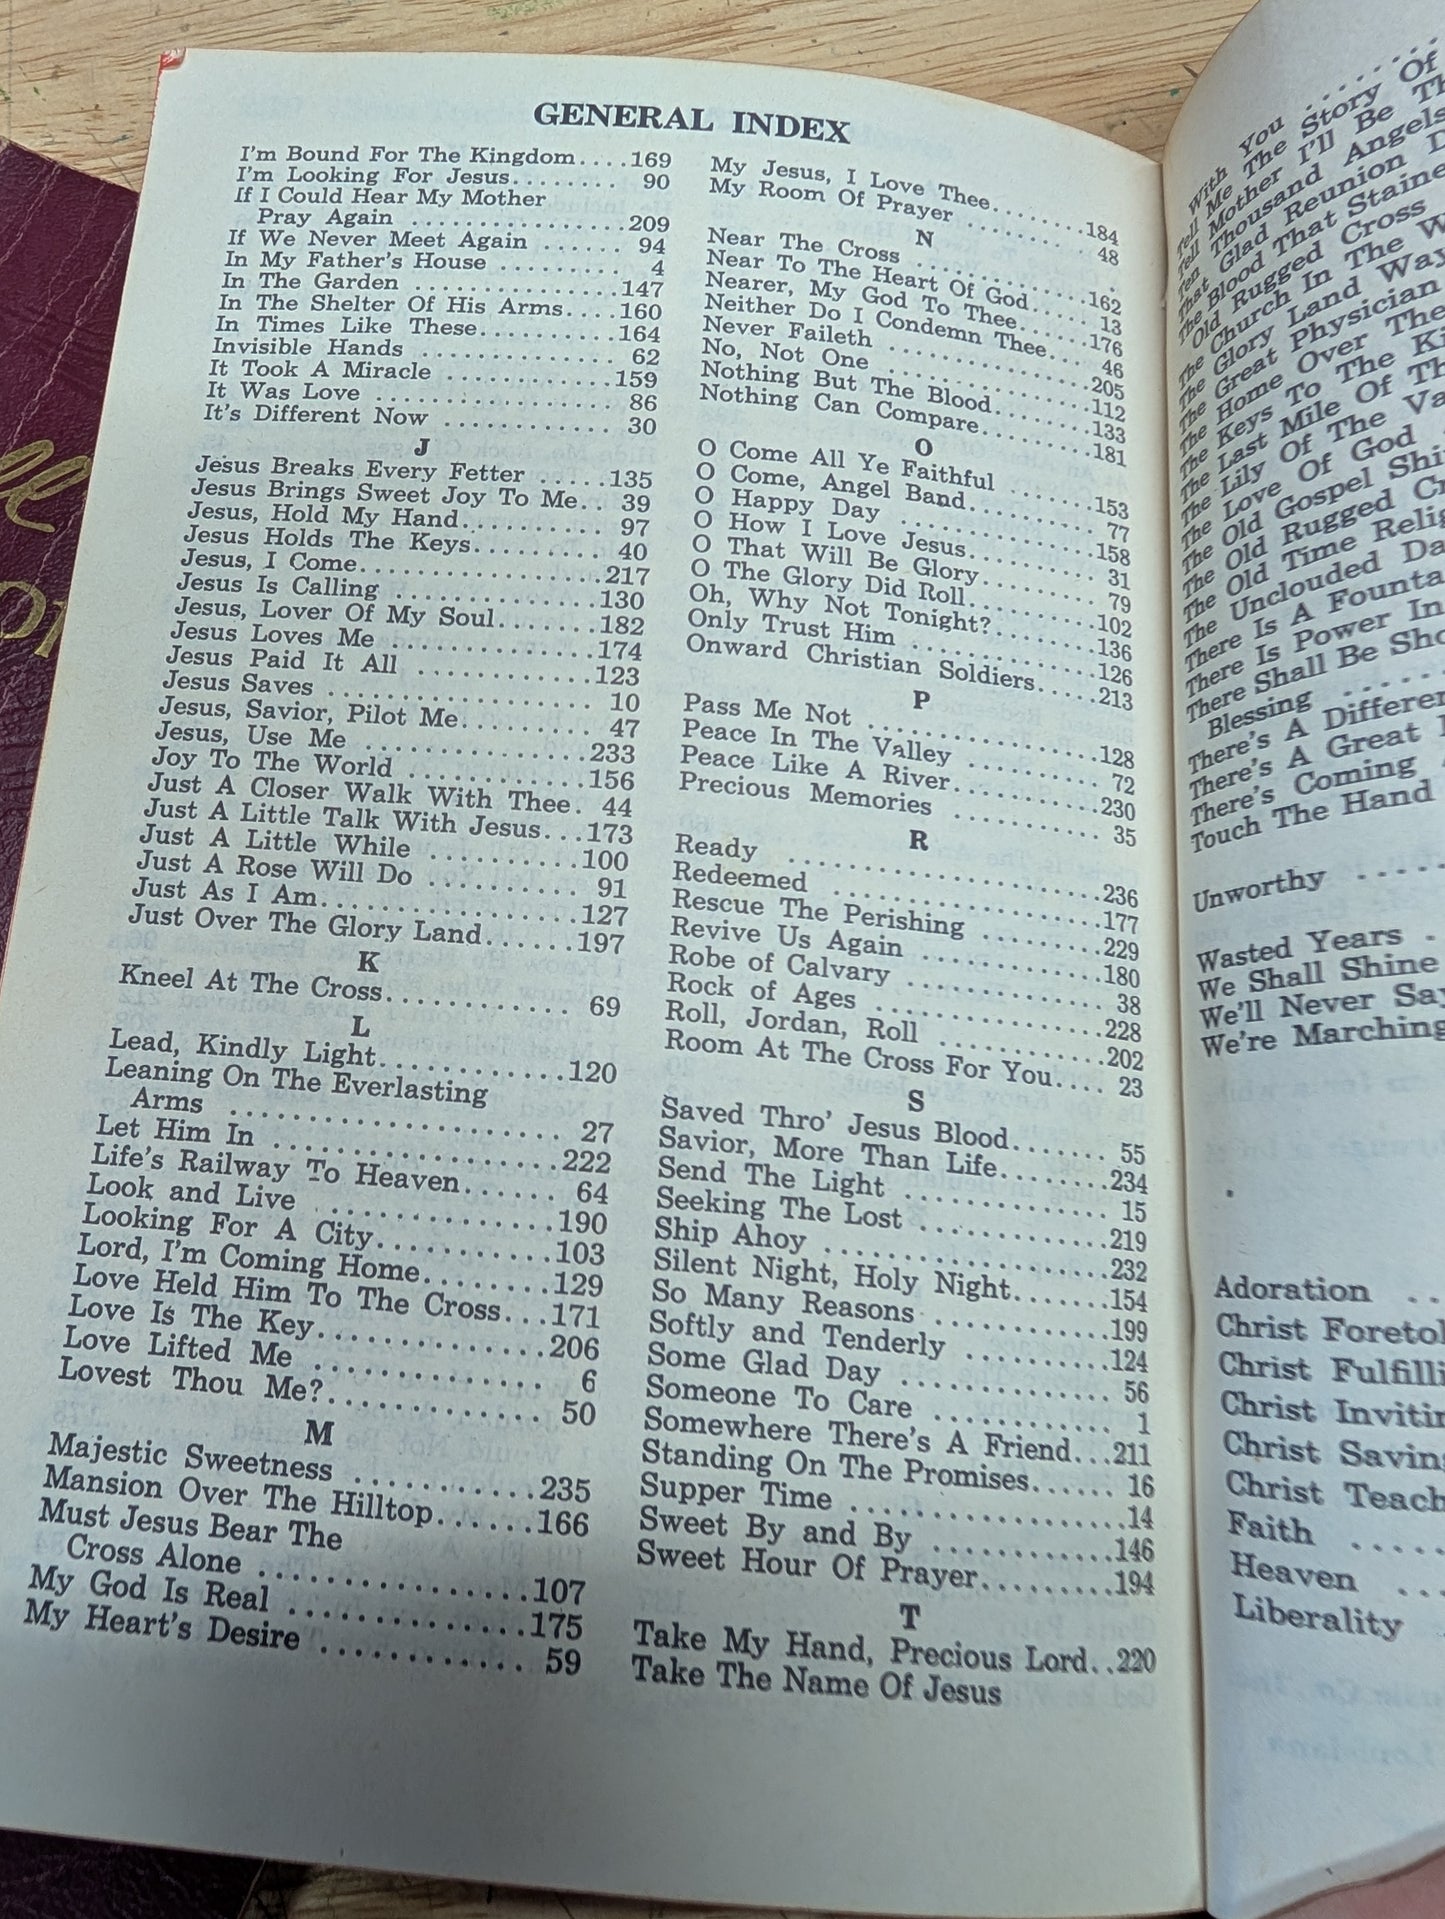 GENERAL INDEX
I'm Bound For The Kingdom....169
I'm Looking For Jesus........ 90
If I Could Hear My Mother
Pray Again ................209
If We Never Meet Again ...... 94
In My Father's House ......... 4
In The Garden ...............147
In The Shelter Of His Arms....160
In Times Like These..........164
Invisible Hands ............. 62
It Took A Miracle ...........159
It Was Love ................. 86
It's Different Now ........... 30
J
Jesus Breaks Every Fetter .....135
Jesus Brings Sweet Joy To Me.. 39
Jesus, Hold My Hand......... 97
Jesus Holds The Keys........ 40
Jesus, I Come................217
Jesus Is Calling .............130
Jesus, Lover Of My Soul.......182
Jesus Loves Me ..............174
Jesus Paid It All ............123
Jesus Saves ................. 10
Jesus, Savior, Pilot Me........ 47
Jesus, Use Me ...............233
Joy To The World ............156
Just A Closer Walk With Thee. 44
Just A Little Talk With Jesus...173
Just A Little While ..........100
Just A Rose Will Do .......... 91
Just As I Am.................127
Just Over The Glory Land......197
K
Kneel At The Cross............ 69
L
Lead, Kindly Light............120
Leaning On The Everlasting
Arms ..................... 27
Let Him In ..................222
Life's Railway To Heaven...... 64
Look and Live ..............190
Looking For A City...........103
Lord, I'm Coming Home........129
Love Held Him To The Cross...171
Love Is The Key..............206
Love Lifted Me .............. 6
Lovest Thou Me?............. 50
M
Majestic Sweetness ...........235
Mansion Over The Hilltop......166
Must Jesus Bear The
Cross Alone .................107
My God Is Real ..............175
My Heart's Desire ............ 59
My Jesus, I Love Thee........184
My Room Of Prayer ......... 48
N
Near The Cross ..............162
Near To The Heart Of God..... 13
Nearer, My God To Thee.......176
Neither Do I Condemn Thee.... 46
Never Faileth ...............205
No, Not One ................112
Nothing But The Blood........133
Nothing Can Compare.........181
O
O Come All Ye Faithful .......153
O Come, Angel Band.......... 77
O Happy Day ...............158
O How I Love Jesus........... 31
O That Will Be Glory.......... 79
O The Glory Did Roll..........102
Oh, Why Not Tonight?.........136
Only Trust Him ..............126
Onward Christian Soldiers.....213
P
Pass Me Not ................128
Peace In The Valley .......... 72
Peace Like A River............230
Precious Memories ........... 35
R
Ready .....................236
Redeemed ..................177
Rescue The Perishing .........229
Revive Us Again .............180
Robe of Calvary ............. 38
Rock of Ages ...............228
Roll, Jordan, Roll ............202
Room At The Cross For You.... 23
S
Saved Thro' Jesus Blood....... 55
Savior, More Than Life........234
Send The Light .............. 15
Seeking The Lost .............219
Ship Ahoy ..................232
Silent Night, Holy Night.......154
So Many Reasons ............199
Softly and Tenderly ..........124
Some Glad Day .............. 56
Someone To Care ............ 1
Somewhere There's A Friend...211
Standing On The Promises...... 16
Supper Time .................14
Sweet By and By ............146
Sweet Hour Of Prayer.........194
T
Take My Hand, Precious Lord..220
Take The Name Of Jesus
With You
Tell Me The Story Of
Tell Mother I'll Be
Ten Thousand Angels
That Glad Reunion
The Blood That
Old Rugged Cross
The Church In The
The Glory Land Way
The Great Physician
The Home Over The
The Keys To The
The Last Mile Of
The Lily Of The
The Love Of God
The Old Gospel
The Old Rugged
The Old Time
The Unclouded
There Is A
There Is Power In
There Shall Be
Blessing ......
There's A
There's A Great
There's Coming
Touch The Hand
Unworthy .....
Wasted Years .
We Shall Shine
We'll Never
We're Marching
Adoration ..
Christ
Christ
Christ
Christ
Christ
Faith .....
Heaven ...
Liberality